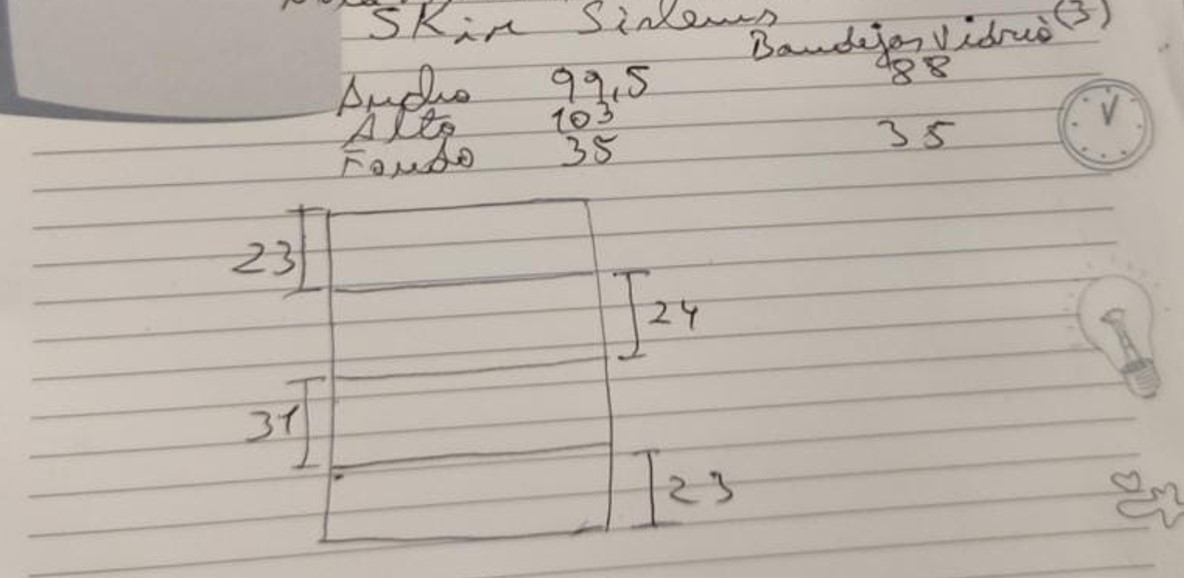 Skin Sistems
Bandejas Vidrio (3)
Ancho 99,5 88
Alto 103
Fondo 35 35
23
24
31
23